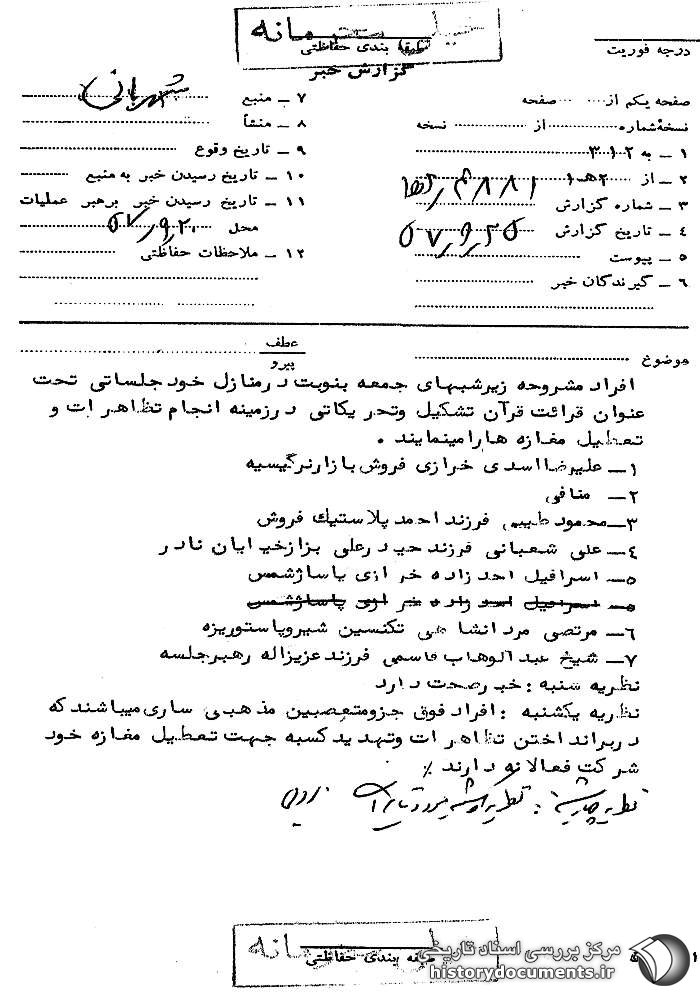 خیلی محرمانه
طبقه بندی حفاظتی
گزارش خبر
درجه فوریت
صفحه یکم از صفحه
نسخه شماره از نسخه
۱ ـ به ۳۱۲
۲ ـ از ۲ هـ ۱
۳ ـ شماره گزارش
۴ ـ تاریخ گزارش ۵۷٫۹٫۲۵
۵ ـ پیوست
۶ ـ گیرندگان خبر
۷ ـ منبع شهربانی
۸ ـ منشأ
۹ ـ تاریخ وقوع
۱۰ ـ تاریخ رسیدن خبر به منبع
۱۱ ـ تاریخ رسیدن خبر برهبر عملیات
محل ۵۷٫۹٫۲۰
۱۲ ـ ملاحظات حفاظتی
موضوع
عطف
پیرو
افراد مشروحه زیرشبهای جمعه بنوبت درمنازل خود جلساتی تحت
عنوان قرائت قرآن تشکیل وتحریکاتی درزمینه انجام تظاهرات و
تعطیل مغازه هارامینمایند .
۱ــ علیرضااسدی خرازی فروش بازارنرگیسیه
۲ــ منافی
۳ــ محمود طبیبی فرزند احمد پلاستیك فروش
٤ــ علی شعبانی فرزند حیدرعلی بزازخیابان نادر
٥ــ اسرافیل احدزاده خرازی پاساژشمس
٥ــ اسرافیل اسد زاده خرازی پاساژشمس
۶ــ مرتضی مردانشاهی تکنسین شیروپاستوریزه
۷ــ شیخ عبدالوهاب قاسمی فرزند عزیزاله رهبرجلسه
نظریه شنبه : خبرصحت دارد
نظریه یکشنبه : افراد فوق جزومتعصبین مذهبی ساری میباشند که
دربراند اختن تظاهرات وتهدید کسبه جهت تعطیل مغازه خود
شرکت فعالانه دارند ٪
نظریه چهارشنبه : نظریه یکشنبه مورد تایید است
خیلی محرمانه
طبقه بندی حفاظتی
مرکز بررسی اسناد تاریخی
historydocuments.ir